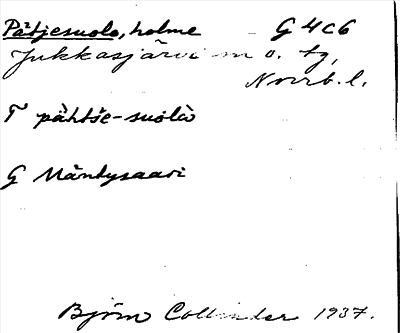 Pätjesuolo, holme G 4c6
Jukkasjärvi m o. tg,
Norrb. l.
T pähtše-suolo
G Mäntysaari
Björn Collinder 1937.